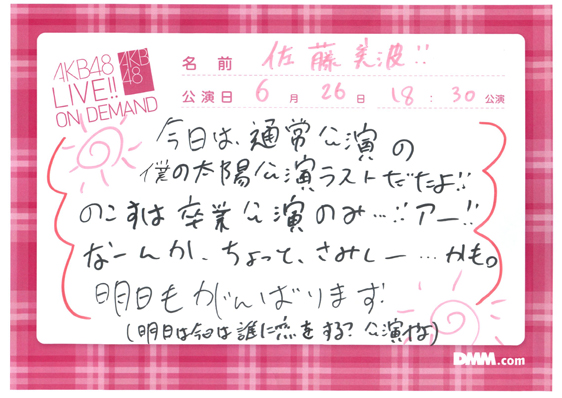 AKB48
LIVE!!
ON DEMAND
AKB
48
名前 佐藤美波!!
公演日 6月26日 18:30公演
今日は、通常公演の
僕の太陽公演ラストだたよ!!
のこすは卒業公演のみ…!!アー!!
なーんか、ちょっと、さみしー…かも。
明日もがんばります!
(明日は今日は誰に恋をする?公演すな)
DMM.com